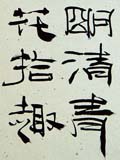 明清青
花指趣